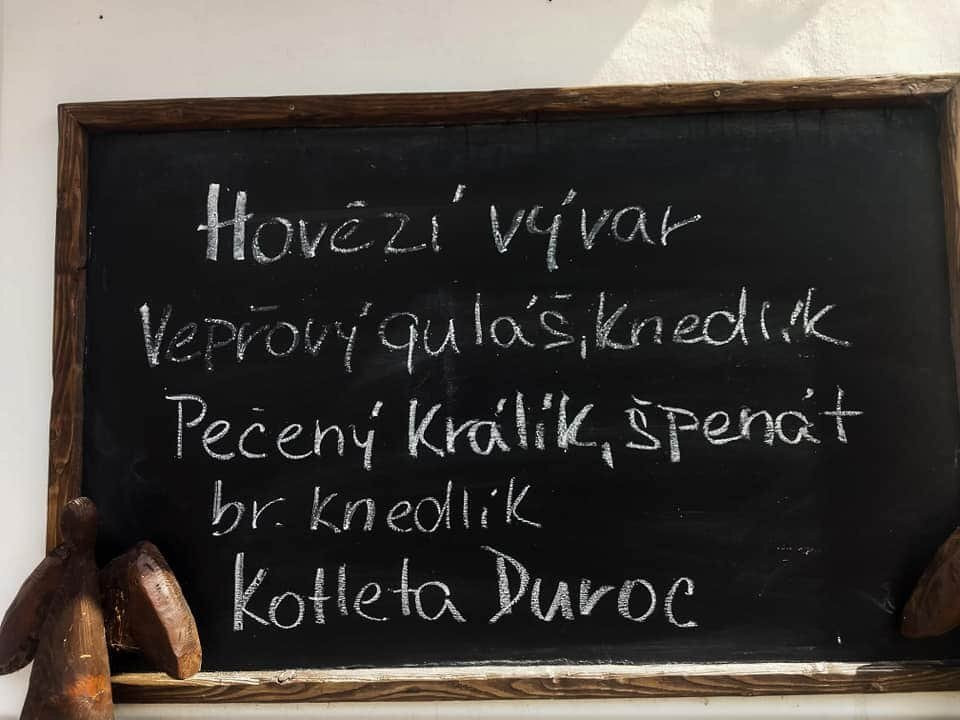 Hovězí vývar
Vepřový guláš, knedlík
Pečený králík, špenát
br. knedlík
Kotleta Duroc